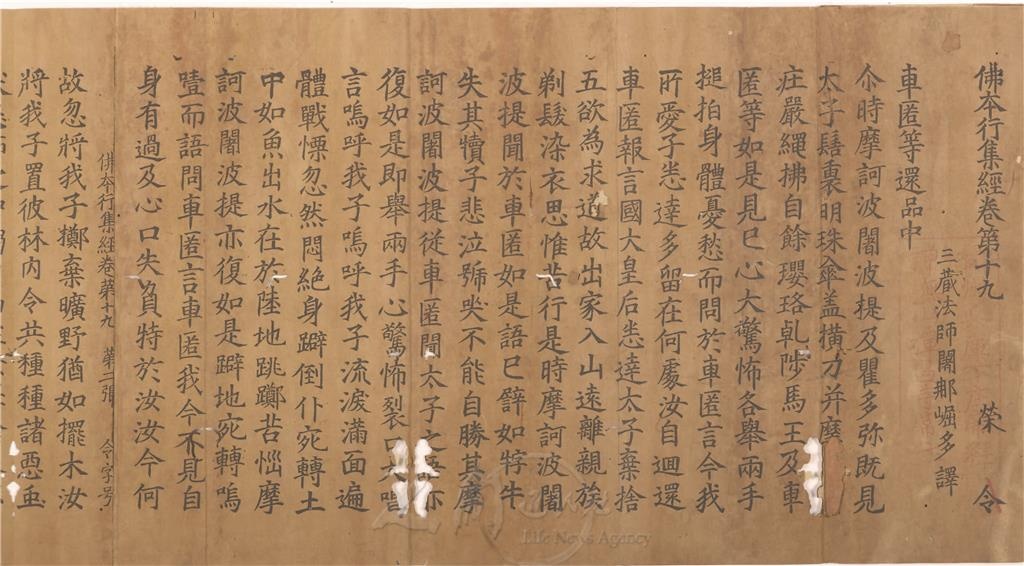 佛夲行集經卷第十九 榮 令
三藏法師闍那崛多譯
車匿等還品中
尒時摩訶波闍波提及瞿多弥既見
太子髻裏明珠傘盖橫刀并摩
庄嚴繩拂自餘瓔珞乹陟馬王及車
匿等如是見已心大驚怖各舉兩手
搥拍身體憂愁而問於車匿言今我
所愛子悉達多留在何處汝自迴還
車匿報言國大皇后悉達太子棄捨
五欲為求道故出家入山遠離親族
剃髮染衣思惟苦行是時摩訶波闍
波提聞於車匿如是語已譬如牸牛
失其犢子悲泣號哭不能自勝其摩
訶波闍波提從車匿聞太子之亦
復如是即舉兩手心驚怖裂口唱
言嗚呼我子嗚呼我子流淚滿面遍
體戰慄忽然悶絕身躃倒仆宛轉土
中如魚出水在於陸地跳躑苦惱摩
訶波闍波提亦復如是躃地宛轉嗚
噎而語問車匿言車匿我今不見自
身有過及心口失負特於汝汝今何
佛夲行集經卷第十九 第二張 令字号
故忽將我子擲棄曠野猶如擺木汝
將我子置彼林內令共種種諸惡虫
Life News Agency